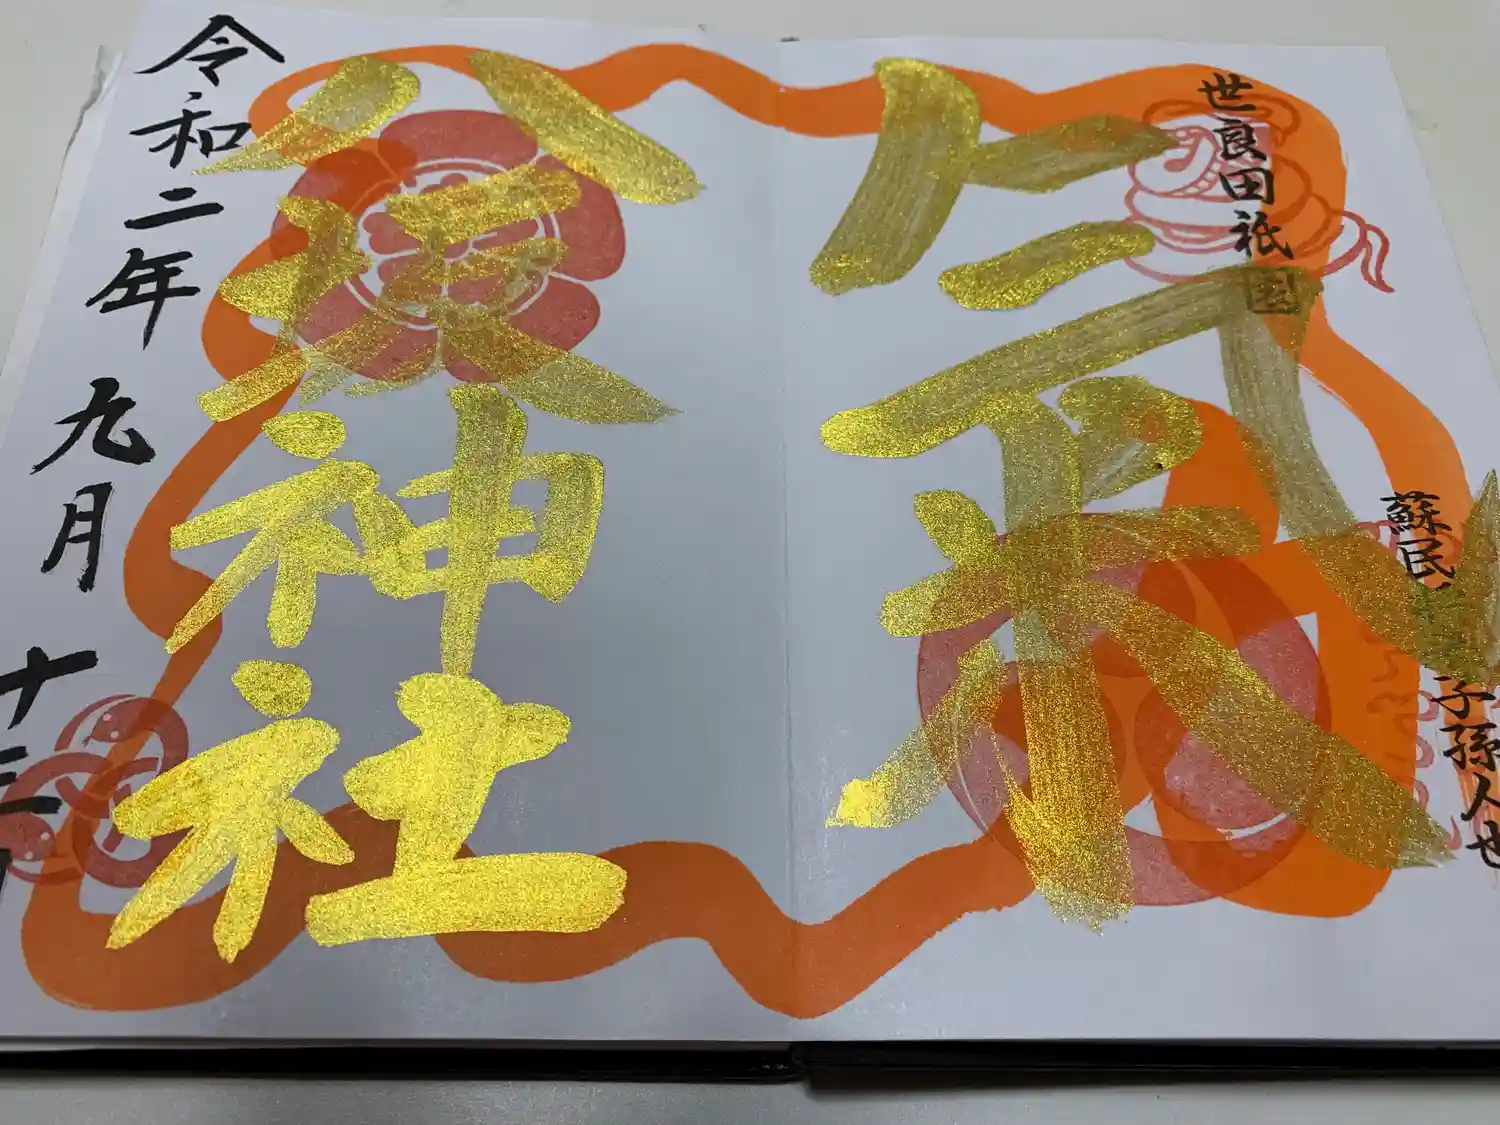 世良田祇園
蘇民
子孫人也
氣
八坂神社
令和二年 九月 十三